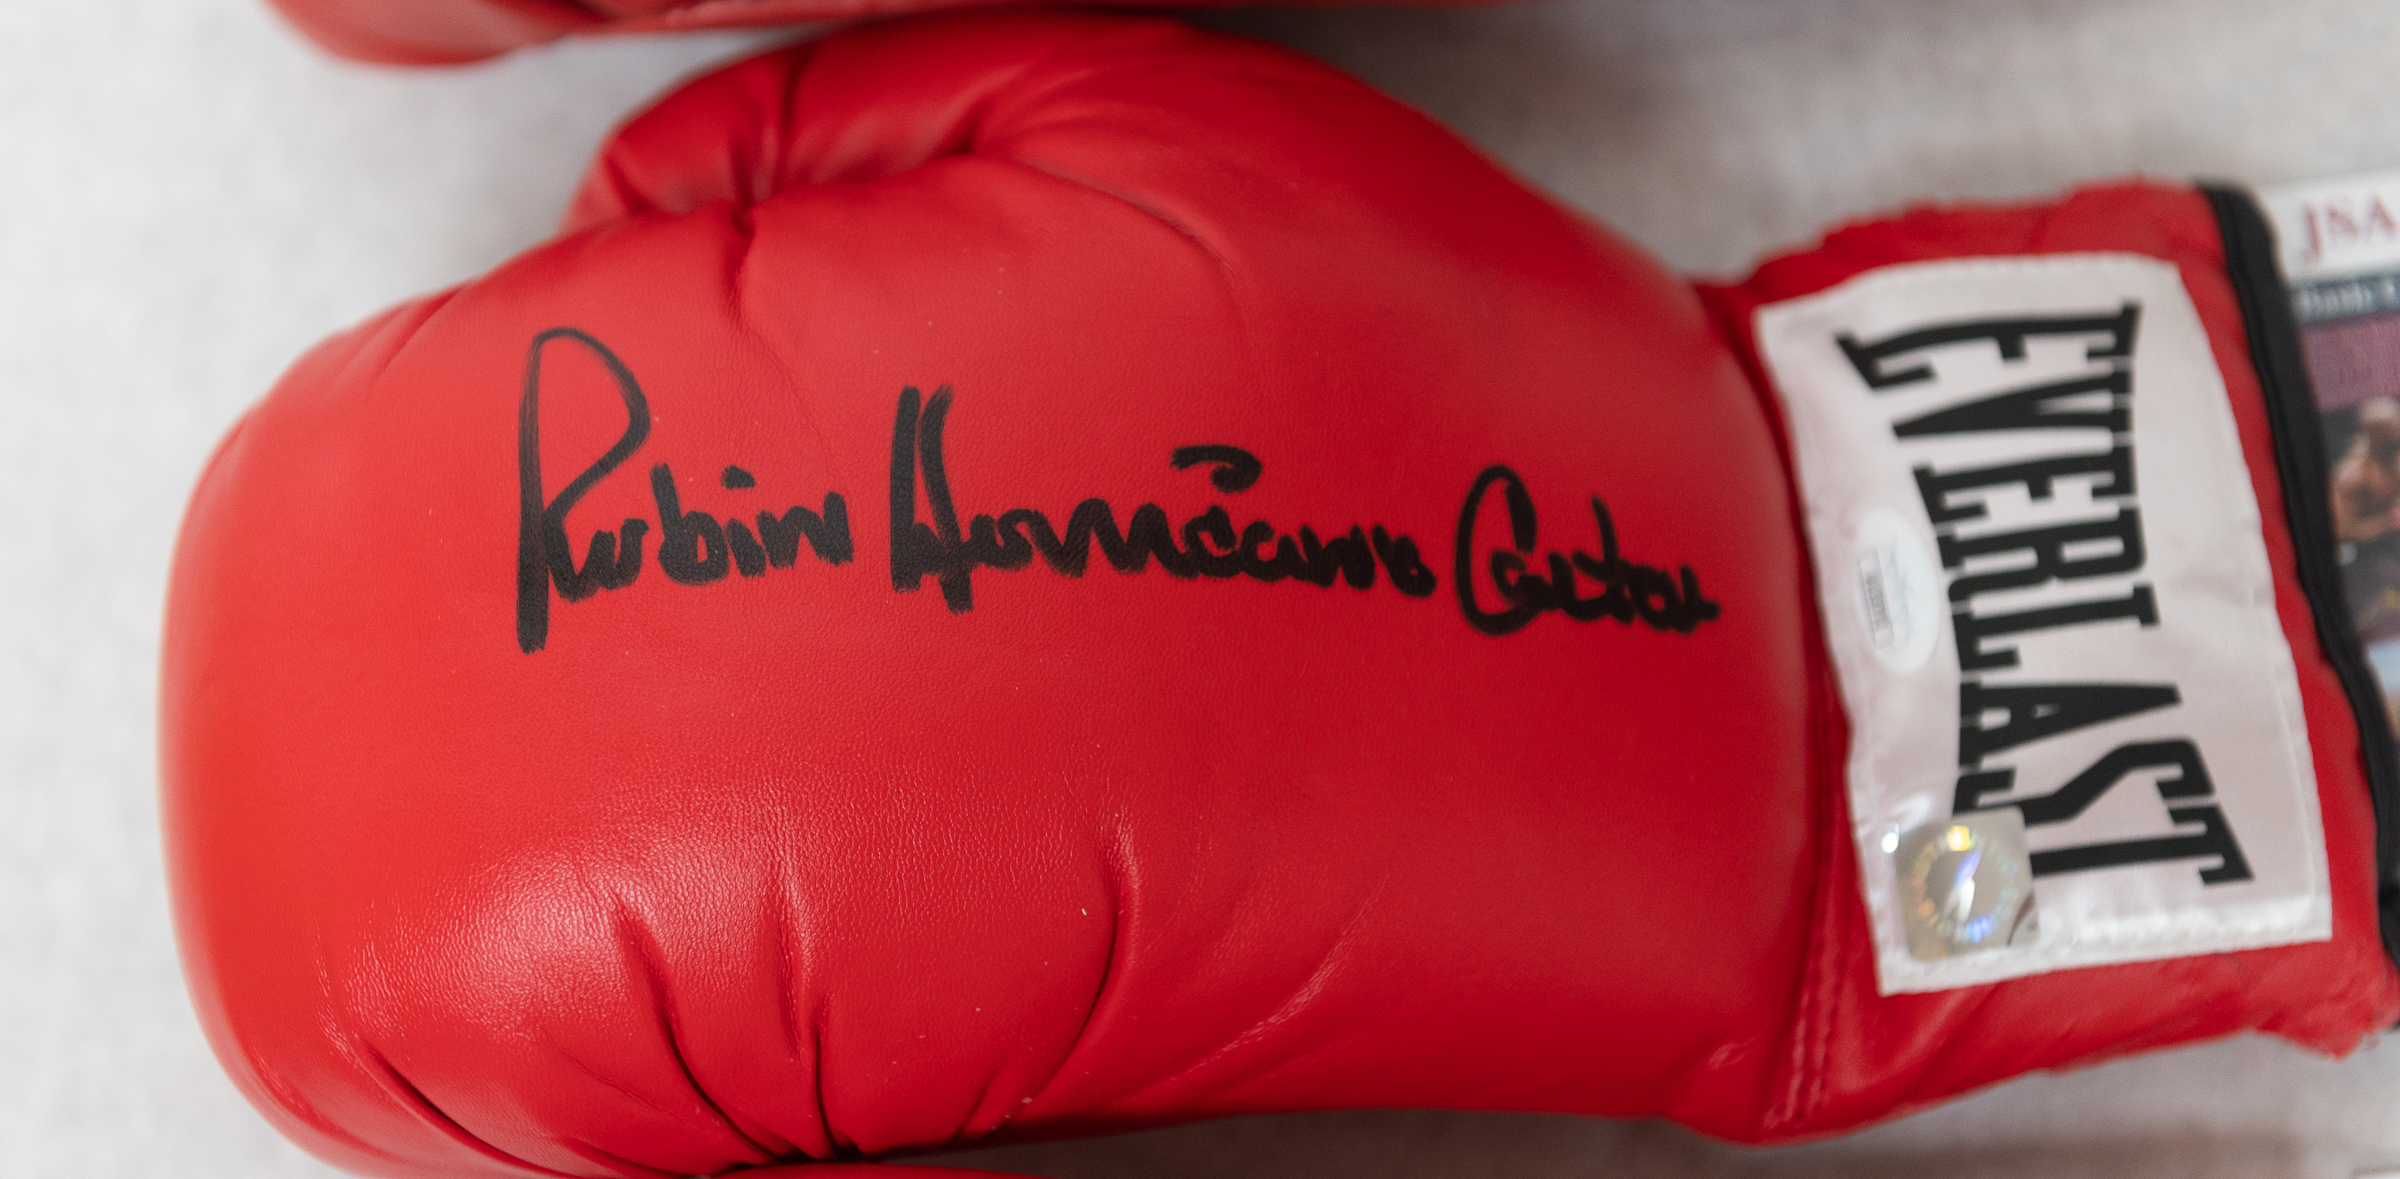 Rubin Hurricane Carter
EVERLAST
JSA